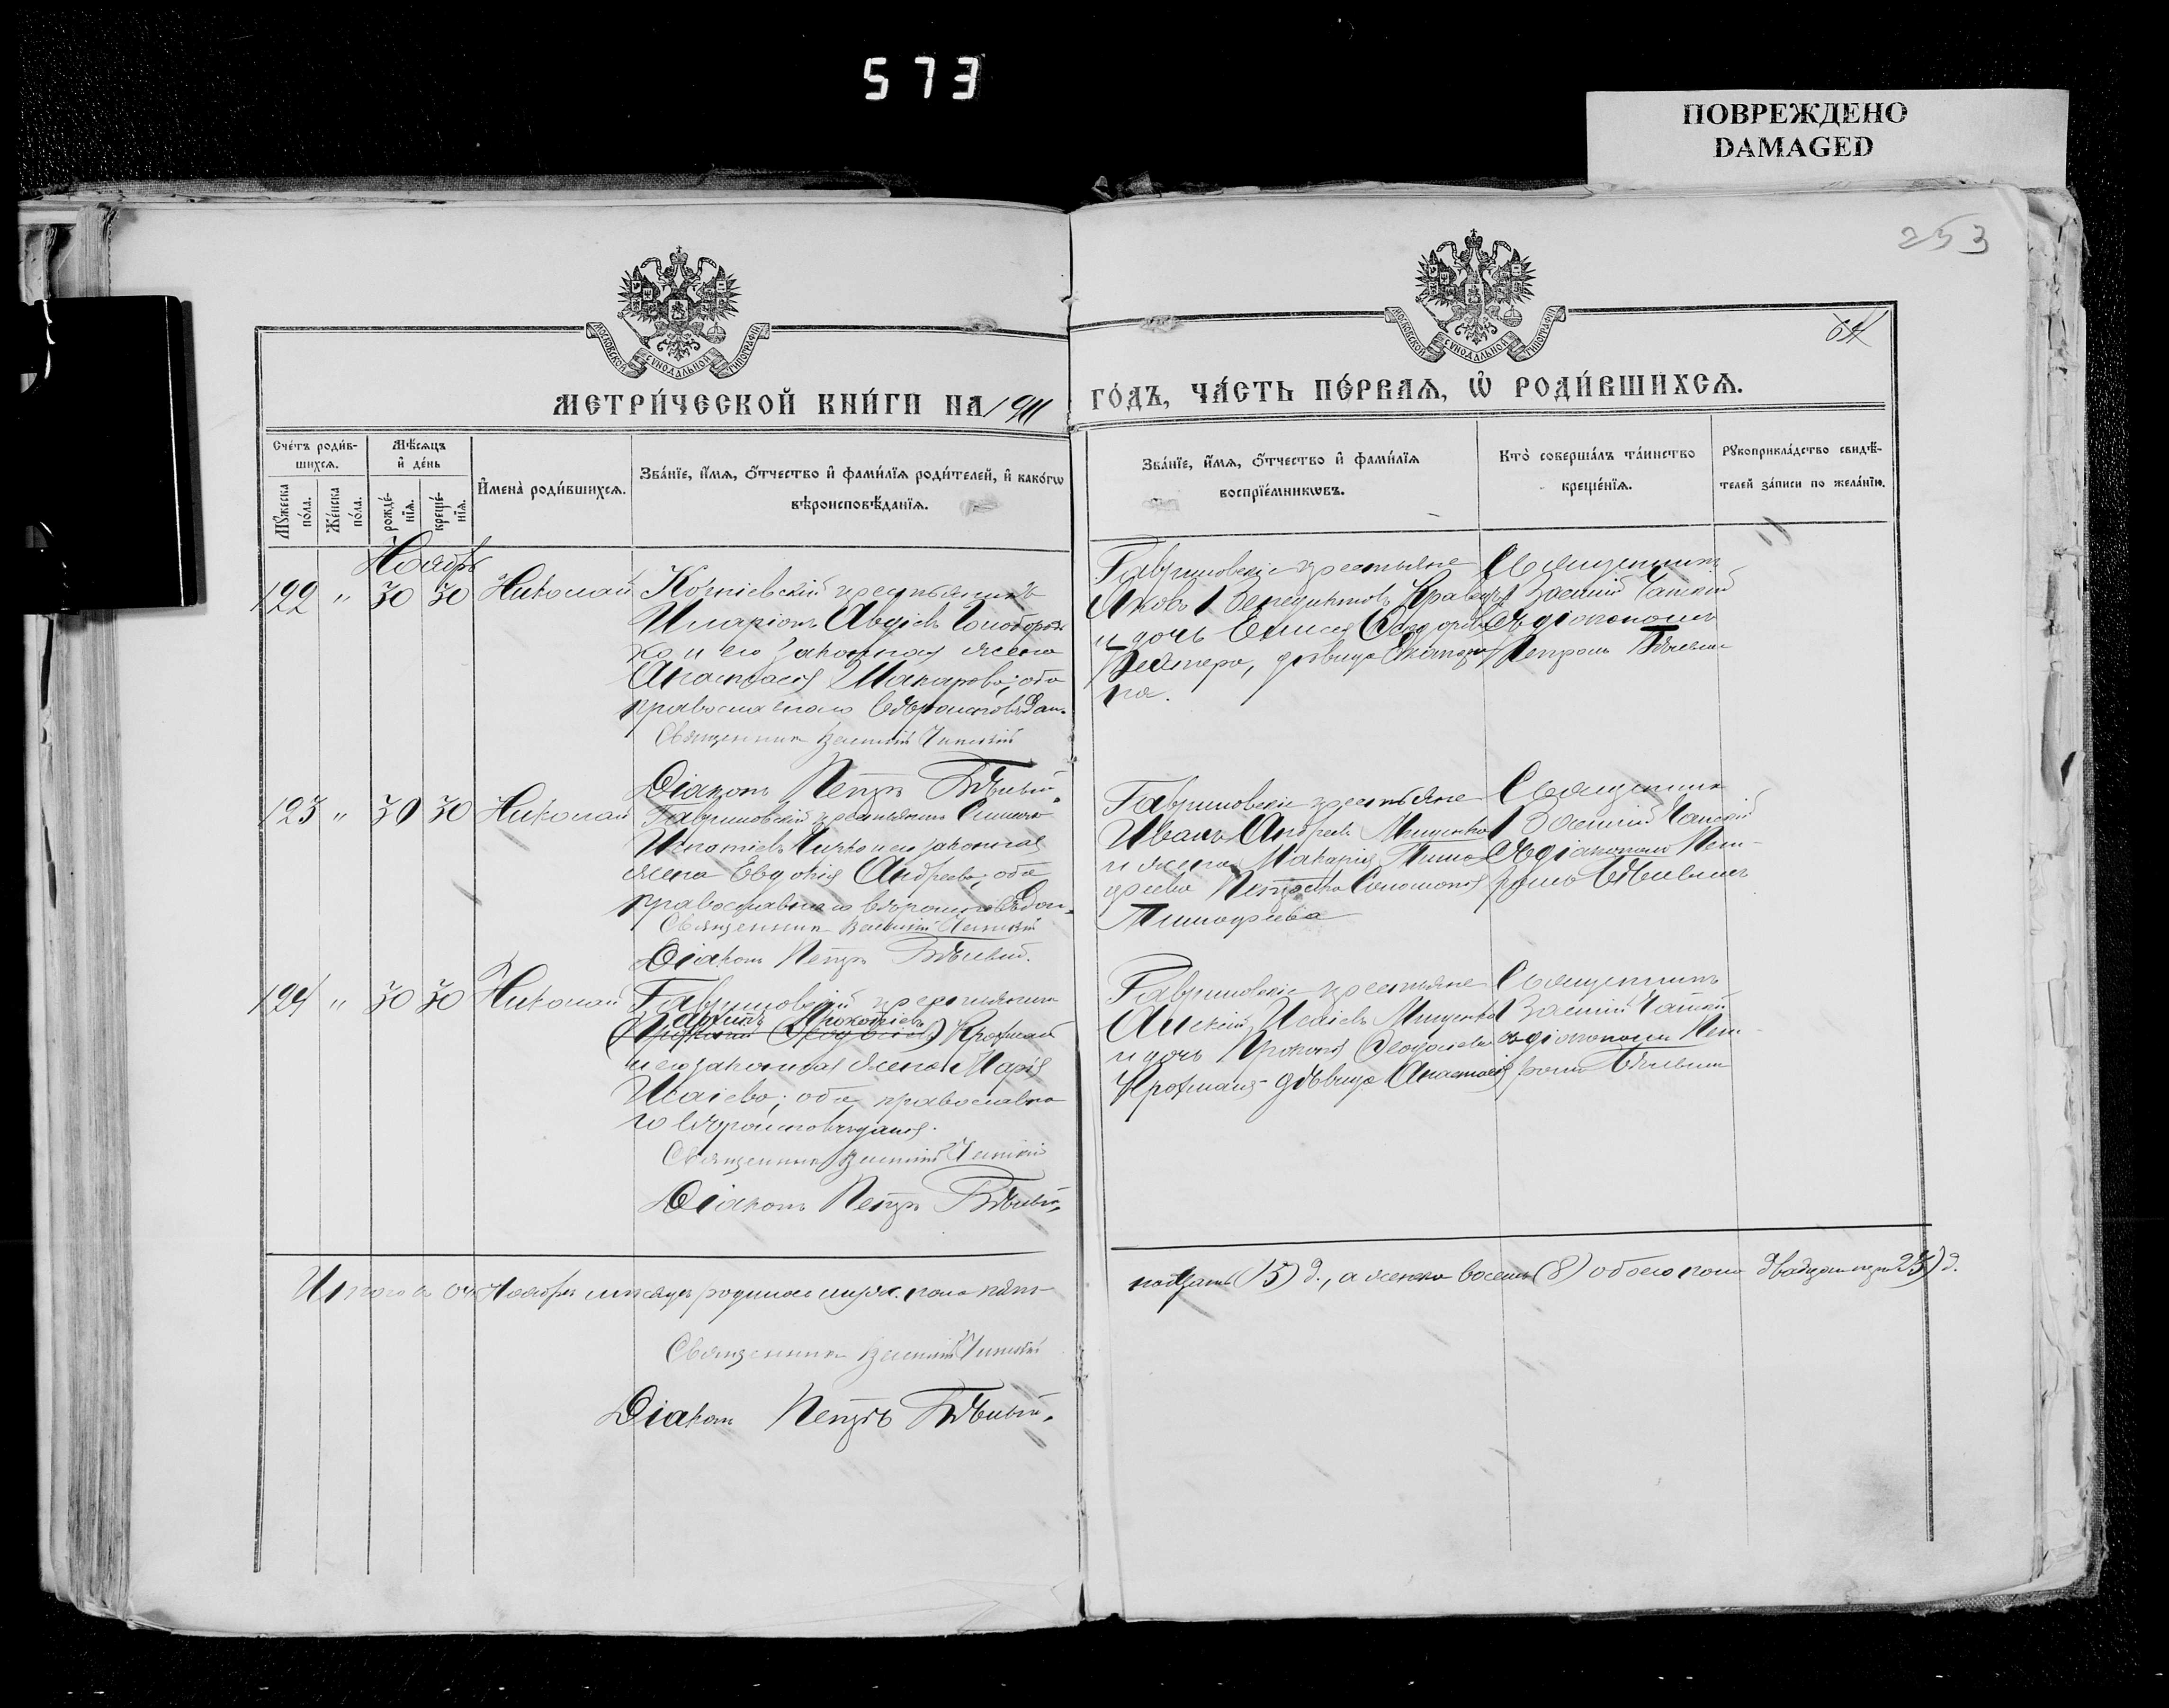 573
ПОВРЕЖДЕНО
DAMAGED
253
64
МОСКОВСКОЙ СѴНОДАЛЬНОЙ ТИПОГРАФІИ
МОСКОВСКОЙ СѴНОДАЛЬНОЙ ТИПОГРАФІИ
МЕТРИ́ЧЕСКОЙ КНИ́ГИ НА 1911
ГО́ДЪ, ЧА́СТЬ ПЕ́РВАѦ, Ѡ҆ РОДИ́ВШИХСѦ.
Сче́тъ роди́в-
шихсѧ.
Мꙋ́жеска
по́ла.
Же́нска
по́ла.
Мѣ́сѧцъ
и҆ де́нь
рожде́-
нїѧ.
креще́-
нїѧ.
И҆мена̀ роди́вшихсѧ.
Зва́нїе, и҆́мѧ, ѻ҆́тчество и҆ фами́лїѧ роди́телей, и҆ како́гѡ
вѣроисповѣ́данїѧ.
Зва́нїе, и҆́мѧ, ѻ҆́тчество и҆ фами́лїѧ
воспрїе́мникѡвъ.
Кто̀ соверша́лъ та́инство
креще́нїѧ.
Рꙋкоприкла́дство свидѣ́-
телей за́писи по жела́нїю.
Ноябрь
122 " 30 30 Николай
крестьянинъ
Иларіонъ Авдіевъ
и его законная жена
Анастасія Макарова; оба
православнаго вѣроисповѣдан.
Священникъ Василій
Діаконъ Петръ Бѣлый.
Гавриловскіе крестьяне
Яковъ Венедиктовъ Кравецъ
и дочь
дѣвица Екатери
на.
Священникъ
Василій
съ діакономъ
Петромъ Бѣлым
123 " 30 30 Николай
Гавриловскій крестьянинъ
Игнатіевъ и его законная
жена Евдокія Андреева; оба
православнаго вѣроисповѣдан.
Священникъ Василій
Діаконъ Петръ Бѣлый.
Гавриловскіе крестьяне
Иванъ Андреевъ Мищенко
и жена Макарія Тимо
феева Соломонія
Тимофеева
Священникъ
Василій
съ діакономъ Пет-
ромъ Бѣлымъ
124 " 30 30 Николай
Гавриловскій крестьянинъ
Прокопіевъ
и его законная жена Марія
Исаіева; оба православна
го вѣроисповѣданія.
Священникъ Василій
Діаконъ Петръ Бѣлый.
Гавриловскіе крестьяне
Алексій Исаіевъ Мищенко
и дочь Прокопія
дѣвица Анастасія
Священникъ
Василій
съ діакономъ Пет-
ромъ Бѣлым
Итого въ Ноябрѣ мѣсяцѣ родилось муж. пола пят-
надцать (15) д., а женска восемь (8) обоего пола двадцать три (23) д.
Священникъ Василій
Діаконъ Петръ Бѣлый.